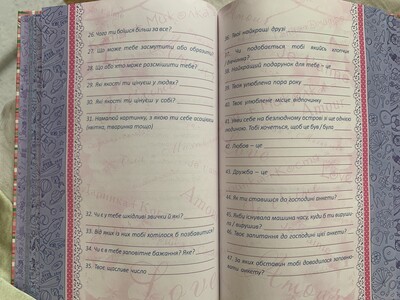 26. Чого ти боїшся більш за все?
27. Що може тебе засмутити або образити?
28. Що або хто може розсмішити тебе?
29. Які якості ти цінуєш у людях?
30. Які якості ти цінуєш у собі?
31. Намалюй картинку, з якою ти себе асоціюєш
(квітка, тваринка тощо)
32. Чи є у тебе шкідливі звички й які?
33. Від яких із них тобі хотілося б позбавитися?
34. Чи є в тебе заповітне бажання? Яке?
35. Твоє щасливе число
36. Твої найкращі друзі
37. Чи подобається тобі якийсь хлопчик
(дівчинка)?
38. Найкращий подарунок для тебе – це
39. Твоя улюблена пора року
40. Твоє улюблене місце відпочинку
41. Уяви себе на безлюдному острові із ще однією
людиною. Тобі хочеться, щоб це був / була
42. Любов – це
43. Дружба – це
44. Як ти ставишся до господині анкети?
45. Якби існувала машина часу, куди б ти вирушив
/ вирушила?
46. Твоє запитання до господині цієї анкети?
47. За яких обставин тобі доводилося заповнювати
анкету?
Love